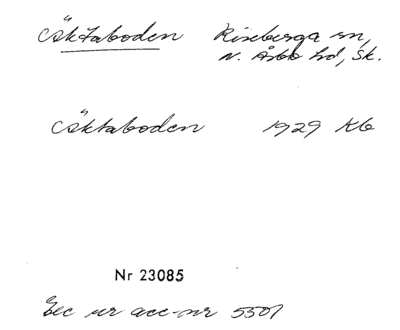 Csäktaboden Riseberga sn,
N. Åsbo hd, Sk.
Csäktaboden 1929 Kb
Nr 23085
Exc ur acc-nr 5501